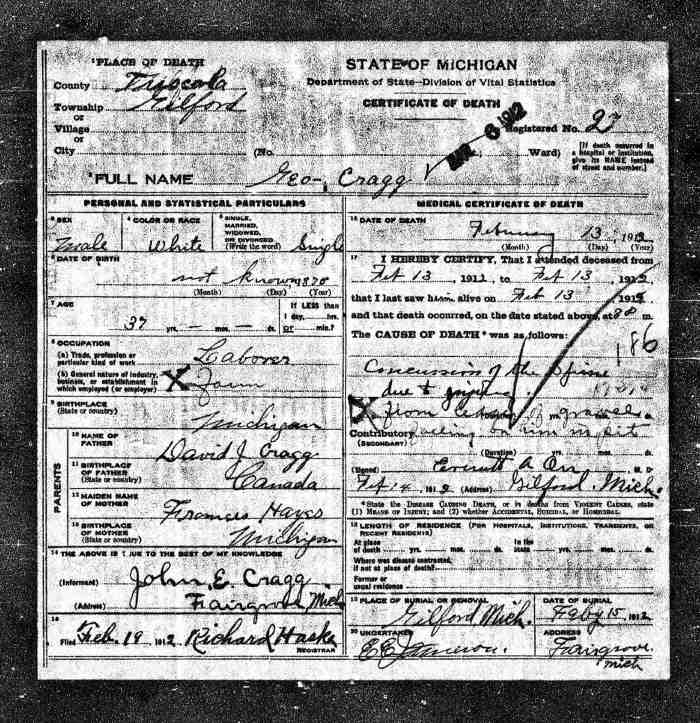 PLACE OF DEATH
County Tuscola
Township Gilford
or
Village
or
City
STATE OF MICHIGAN
Department of State—Division of Vital Statistics
CERTIFICATE OF DEATH
6 1912
Registered No. 23
(No. St.; Ward)
[If death occurred in a hospital or institution, give its NAME instead of street and number.]
FULL NAME Geo- Cragg
PERSONAL AND STATISTICAL PARTICULARS
3 SEX
Male
4 COLOR OR RACE
White
5 SINGLE, MARRIED, WIDOWED, OR DIVORCED
(Write the word) Single
6 DATE OF BIRTH
not known 1875
(Month) (Day) (Year)
7 AGE
37 yrs. — mos. — ds.
If LESS than 1 day, hrs. or min.?
8 OCCUPATION
(a) Trade, profession or particular kind of work Laborer
(b) General nature of industry, business, or establishment in which employed (or employer) X Farm
9 BIRTHPLACE
(State or country) Michigan
PARENTS
10 NAME OF FATHER David J. Cragg
11 BIRTHPLACE OF FATHER
(State or country) Canada
12 MAIDEN NAME OF MOTHER Frances Hayes
13 BIRTHPLACE OF MOTHER
(State or country) Michigan
14 THE ABOVE IS TRUE TO THE BEST OF MY KNOWLEDGE
(Informant) John E. Cragg
(Address) Fairgrove, Mich
15
Filed Feb. 19 1912 Richard Haske
REGISTRAR
MEDICAL CERTIFICATE OF DEATH
16 DATE OF DEATH
February 13, 1912
(Month) (Day) (Year)
17 I HEREBY CERTIFY, That I attended deceased from
Feb 13, 1912 to Feb 13, 1912
that I last saw him alive on Feb 13 1912
and that death occurred, on the date stated above, at m.
The CAUSE OF DEATH* was as follows:
186
Concussion of the Spine
due to injury
X from of gravel
Contributory falling on him in pit
(SECONDARY)
(Duration) yrs. mos. ds.
(Signed) Everett A Orr M. D.
Feb 14, 1912 (Address) Gilford, Mich.
*State the DISEASE CAUSING DEATH, or in deaths from VIOLENT CAUSES, state (1) MEANS OF INJURY; and (2) whether ACCIDENTAL, SUICIDAL, or HOMICIDAL.
18 LENGTH OF RESIDENCE (FOR HOSPITALS, INSTITUTIONS, TRANSIENTS, OR RECENT RESIDENTS)
At place of death yrs. mos. ds. In the State yrs. mos. ds.
Where was disease contracted, if not at place of death?
Former or usual residence
19 PLACE OF BURIAL OR REMOVAL
Gilford Mich.
DATE OF BURIAL
Feby 15, 1912
20 UNDERTAKER
E E Cameron.
ADDRESS
Fairgrove
Mich